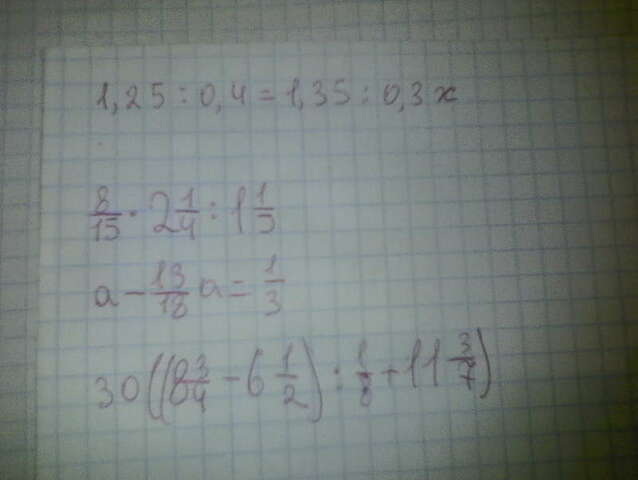 1,25 : 0,4 = 1,35 : 0,3x
8/15 · 2 1/4 : 1 1/5
a - 13/18 a = 1/3
30((8 3/4 - 6 1/2) : 1/8 + 11 3/7)